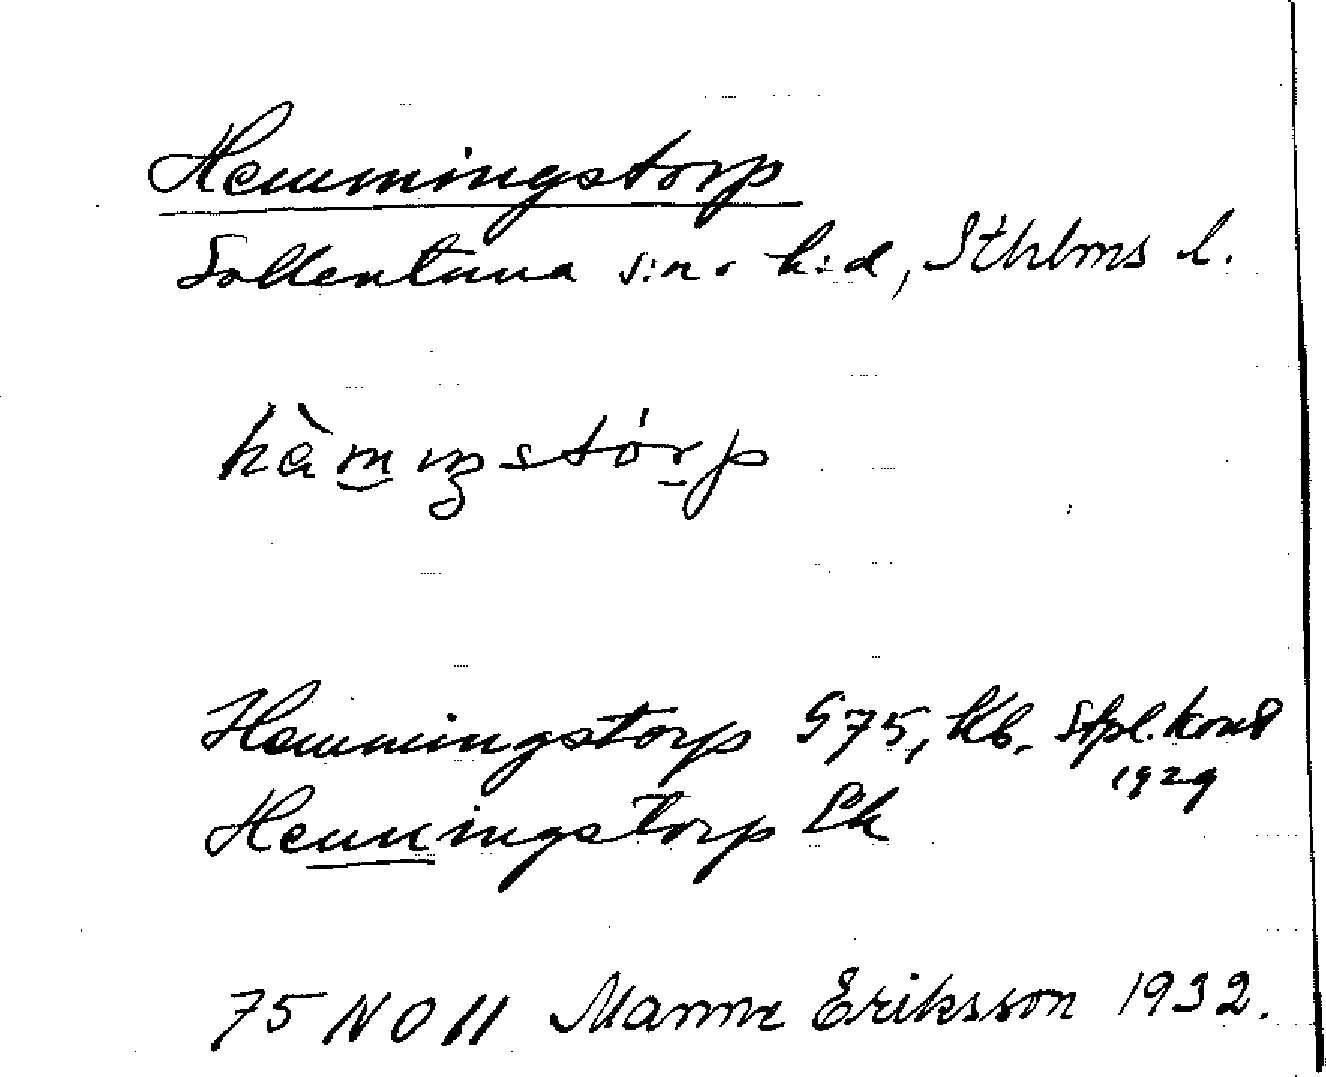 Hemmingstorp
Sollentuna s:n o h:d, Sthlms l.
hàmıŋstórp
Hemmingstorp G75, Kb. Stpl.kont
1929
Henningstorp Ek
75 NO 11 Manne Eriksson 1932.